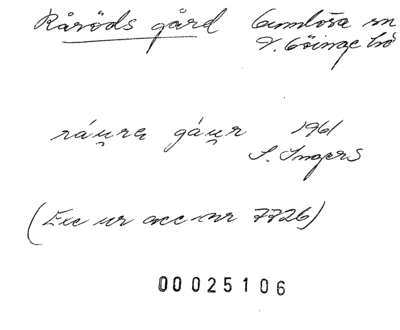 Råröds gård Gumlösa sn
V. Göinge hd
ráu̯rą gáu̯r 1961
S. Ingers
(Exc ur acc nr 7726)
00025106